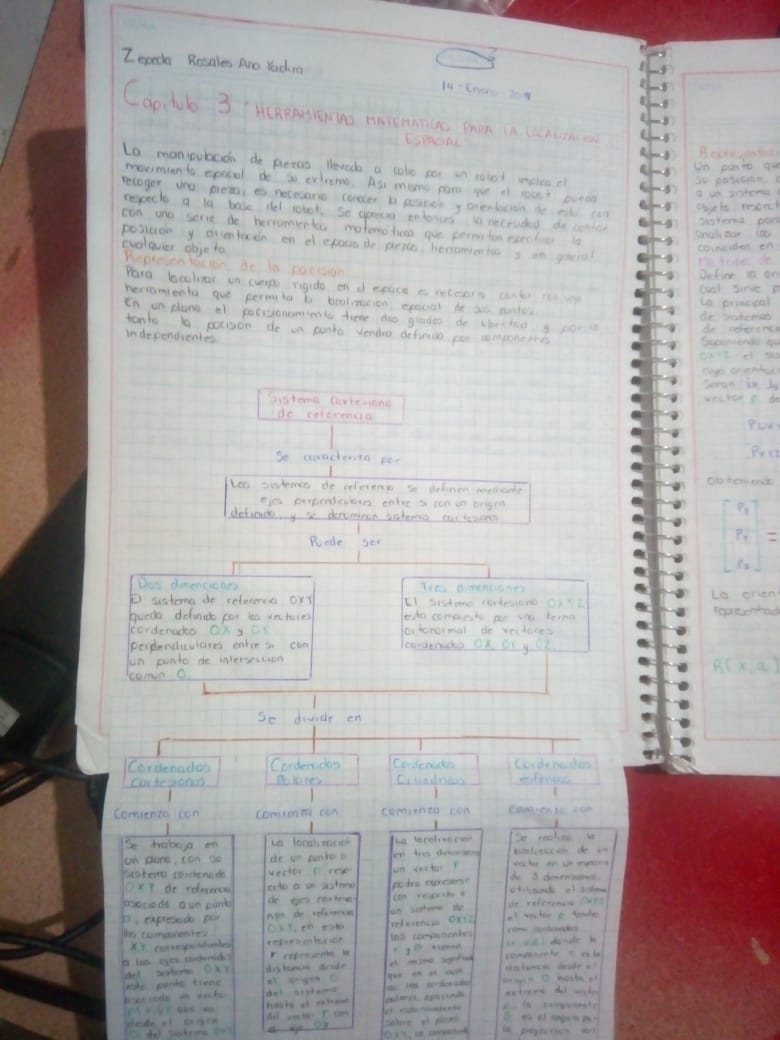 Zepeda Rosales Ana Yadira
14-Enero 2019
Capitulo 3 HERRAMIENTAS MATEMATICAS PARA LA LOCALIZACION
ESPACIAL
La manipulación de piezas llevada a cabo por un robot implica el
movimiento espacial de su extremo. Asi mismo para que el robot pueda
recoger una pieza, es necesario conocer la posición y orientación de esta con
respecto a la base del robot. Se aprecia entonces la necesidad de contar
con una serie de herramientas matematicas que permitan especificar la
posición y orientación en el espacio de piezas, herramientas y en general
cualquier objeto
Representación de la pocision
Para localizar un cuerpo rigido en el espacio es necesario contar con una
herramienta que permita la localización espacial de sus puntos.
En un plano el pocisionamiento tiene dos grados de libertad y por lo
tanto la pocison de un punto vendra definida por componentes
independientes
Sistema cartesiano
de referencia
Se caracteriza por
Los sistemas de referencia se definen mediante
ejes perpendiculares entre si con un origen
definido, y se denominan sistemas cartesianos
Puede ser
Dos dimenciones
El sistema de referencia OXY
queda definido por los vectores
cordenados OX y OY
perpendiculares entre si con
un punto de interseccion
comun O.
Tres dimenciones
El sistema cartesiano OXYZ
esta compuesto por una terna
ortonormal de vectores
cordenados OX, OY y OZ
Se divide en
Cordenadas
Cartesianas
Cordenadas
Polares
Cordenadas
Cilindricas
Cordenadas
esfericas
Comienza con
comienza con
comienza con
comienza con
Se trabaja en
un plano, con su
sistema cordenado
OXY de referencia
asociado a un punto
expresado por
las componentes
XY correspondientes
a los ejes cordenados
del sistema OXY
este punto tiene
asociado un vector
desde el origen
O del sistema
La localización
de un punto o
vector p respecto
a un sistema
de ejes cartesianos
de referencia
OXY, en esta
representación
r representa la
distancia desde
el origen O
del sistema
hasta el extremo
del vector r con
el eje OX
La localización
en tres dimensiones
un vector r
podra expresarse
con respecto a
un sistema de
referencia OXYZ
las componentes
r y θ tienen
el mismo significado
que en el caso
de las cordenadas
polares, aplicando
el razonamiento
sobre el plano
OXY, la componente
Se realiza la
localización de un
vector en un espacio
de 3 dimensiones,
utilizando el sistema
de referencia OXYZ
el vector p tendra
como cordenadas
donde la
componente r es la
distancia desde el
origen O hasta el
extremo del vector
p, la componente
θ es el angulo
la proyeccion del
Un punto que
su posición,
a un sistema
objeto respect
sistema
analizar los
coinciden en
Define la
cual sirve p
La principal
de sistemas
de referenc
Suponiendo qu
OXYZ el sis
cuya orientac
Seran ix jy
vector p de
Puv
Pxyz
obteniendo
Px
Py
Pz
=
La orien
representad
R(x, α)